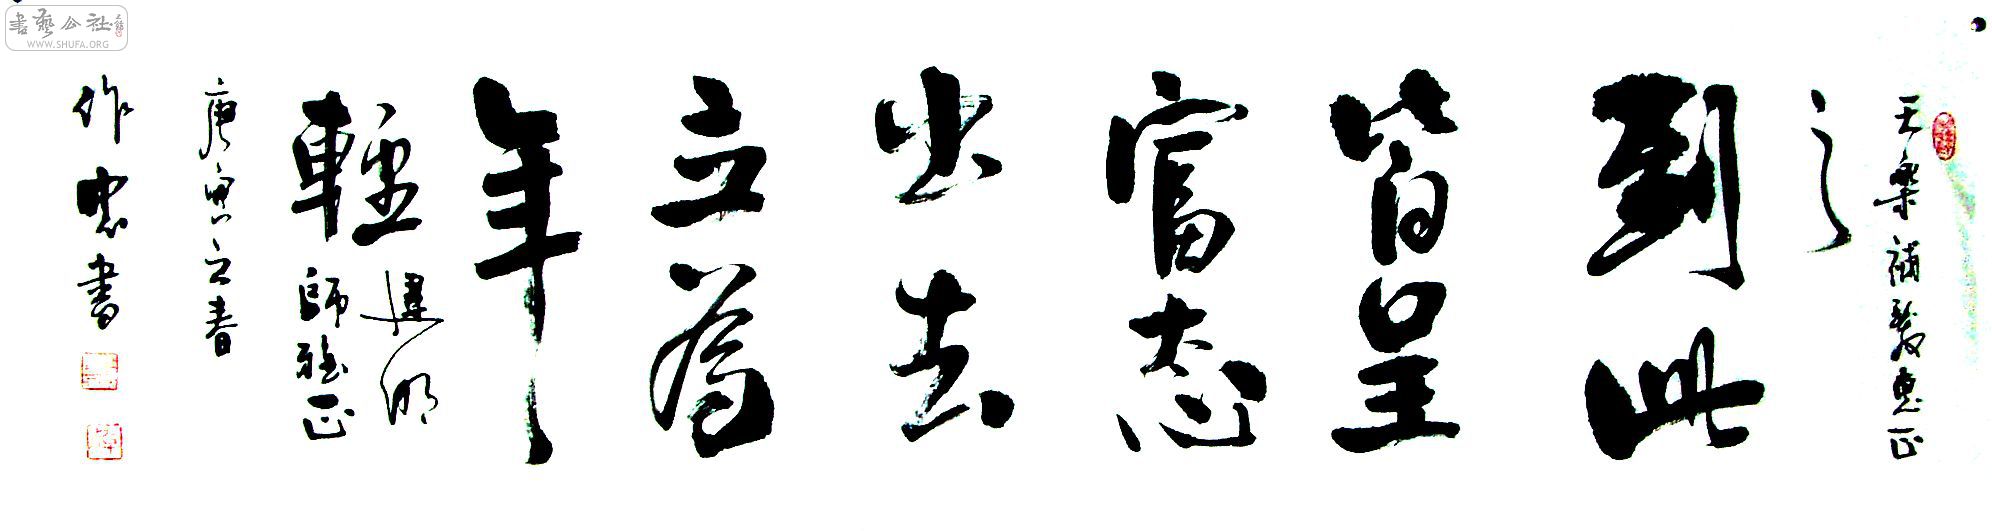 天樂補敬惠正
之
到此
皆呈
富态
出去
立为
年
輕
建明
師雅正
庚寅之春
作忠書
書藝公社
WWW.SHUFA.ORG